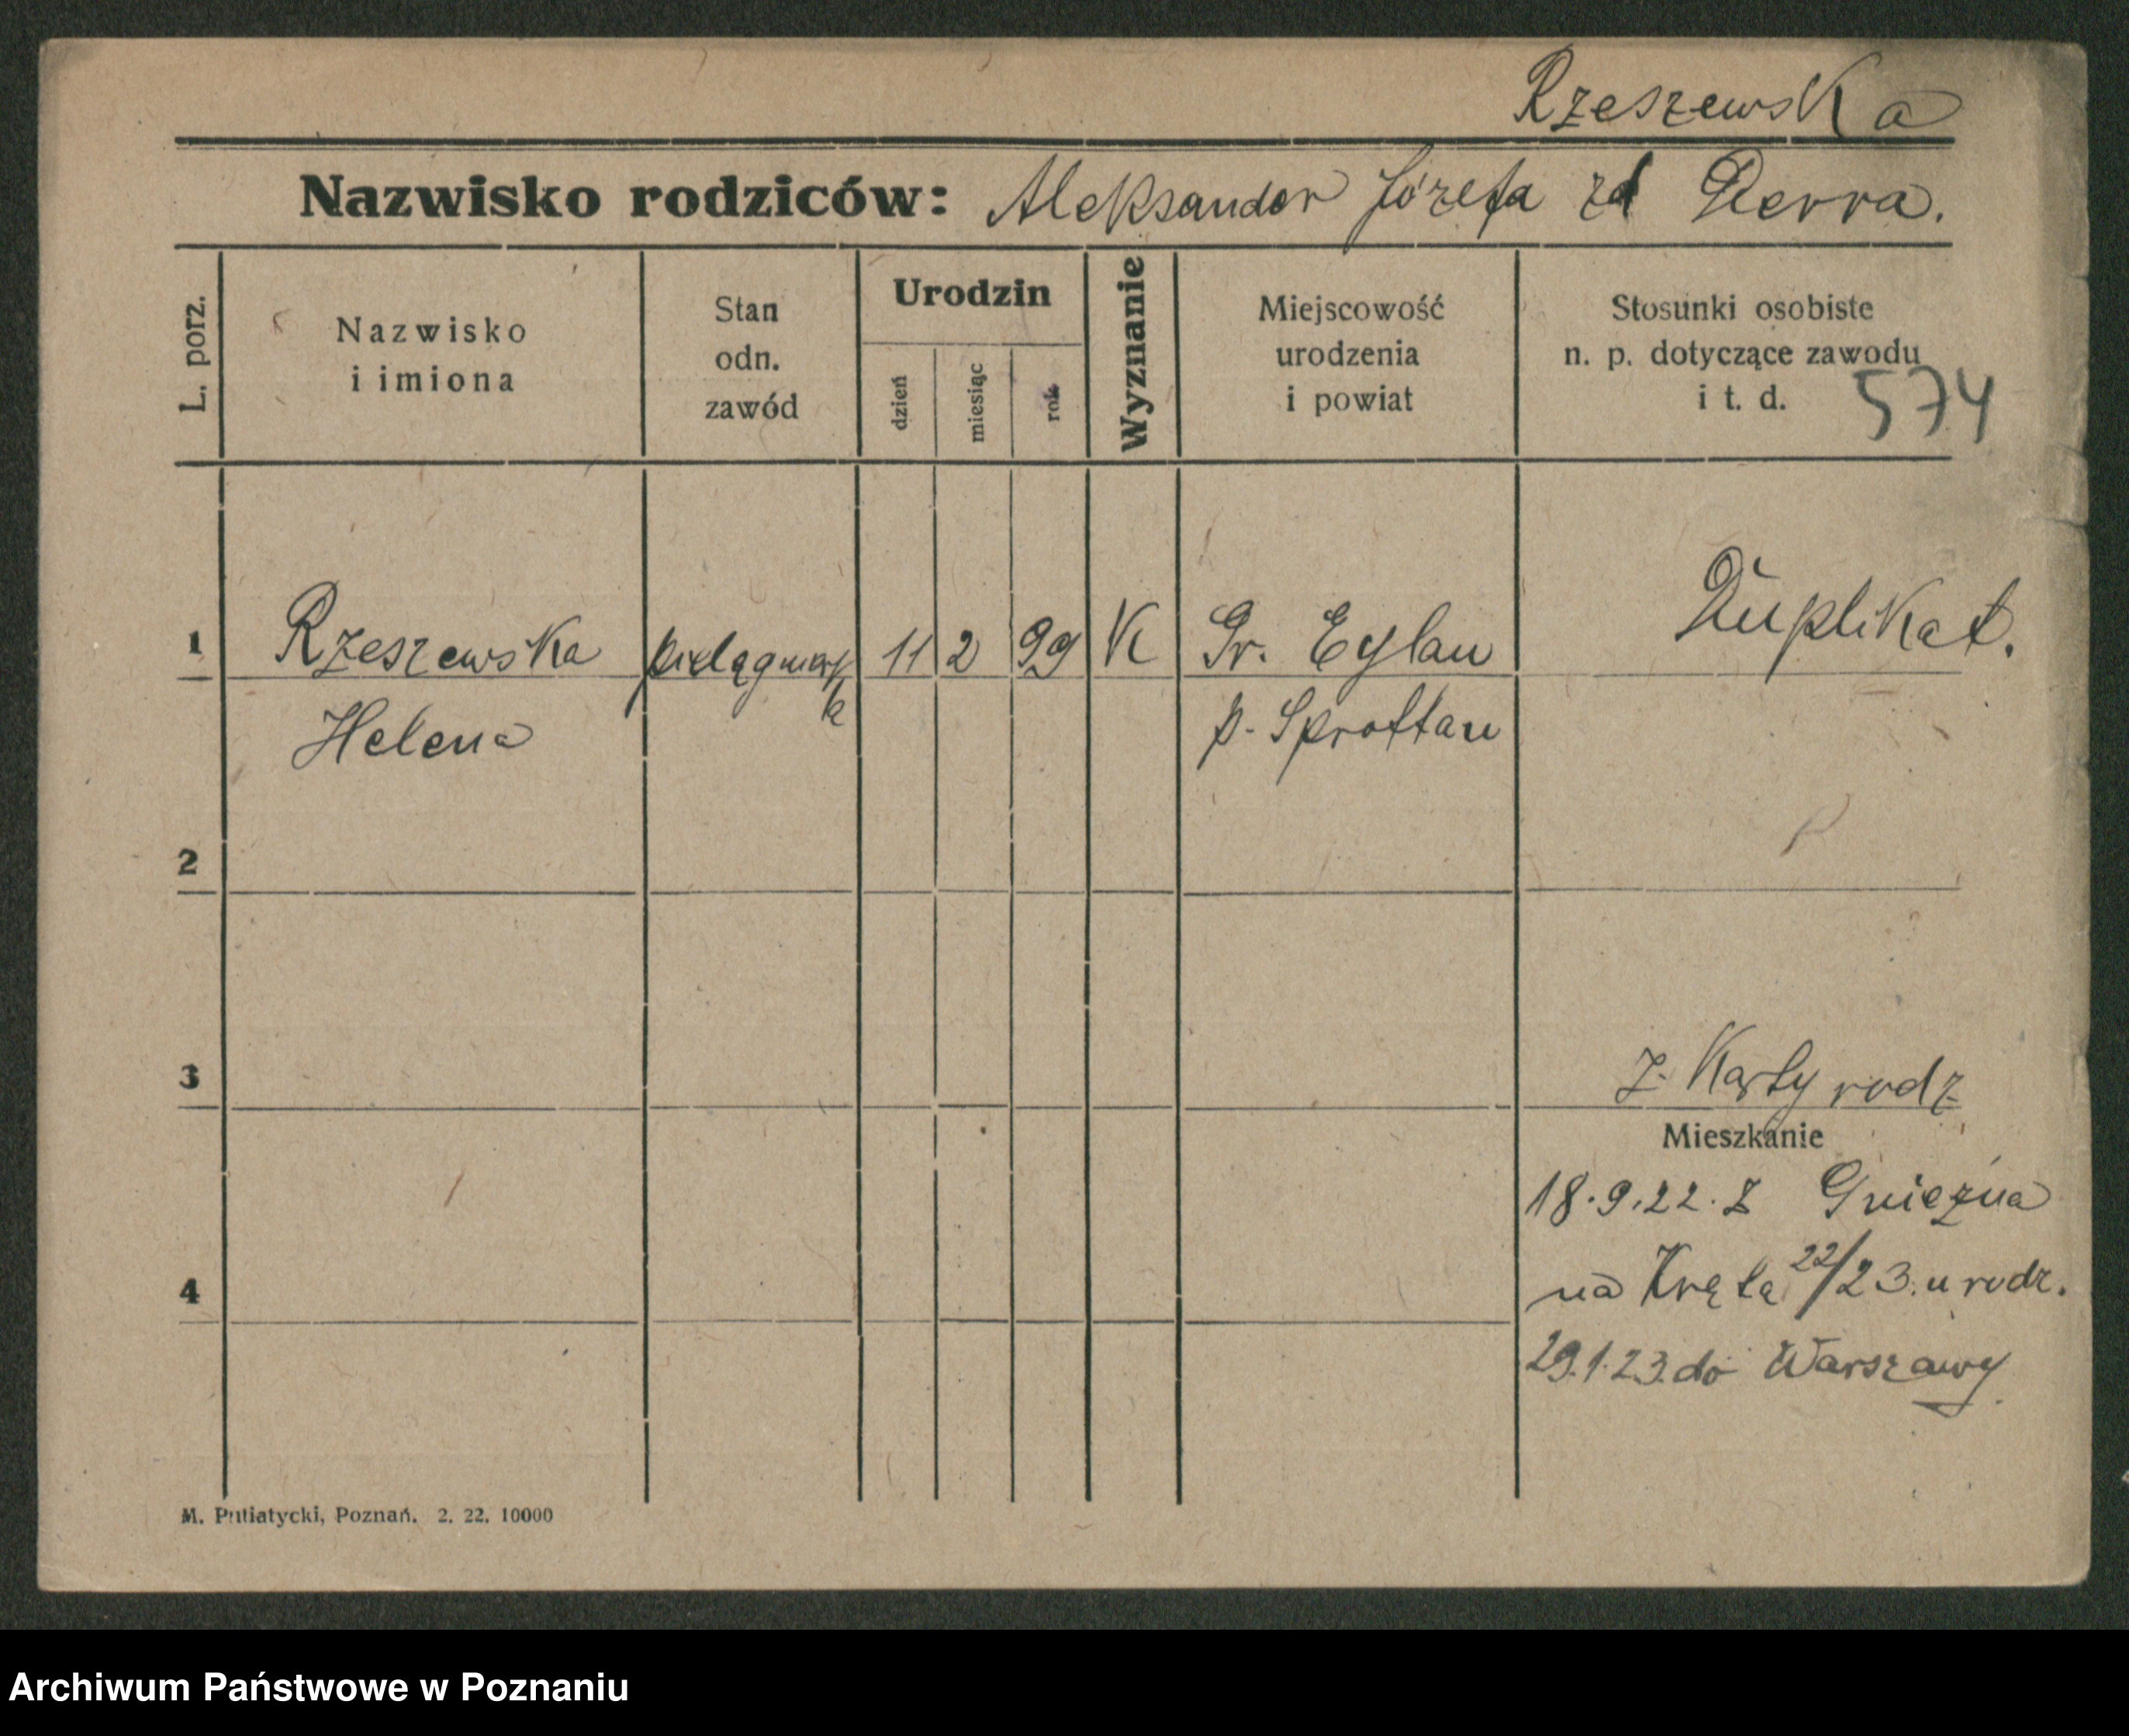 Rzeszewska
Nazwisko rodziców: Aleksander Józefa zd Derra.
L. porz.
Nazwisko
i imiona
Stan
odn.
zawód
Urodzin
dzień
miesiąc
rok
Wyznanie
Miejscowość
urodzenia
i powiat
Stosunki osobiste
n. p. dotyczące zawodu
i t. d.
574
1 Rzeszewska 11 2 99 K Gr. Eylau Duplikat.
Helena p. Sprottau
2
3 z Karty rodz
Mieszkanie
18.9.22. z Gniezna
4 na Krętą 22/23. u rodz.
29.1.23. do Warszawy
M. Putiatycki, Poznań. 2. 22. 10000
Archiwum Państwowe w Poznaniu